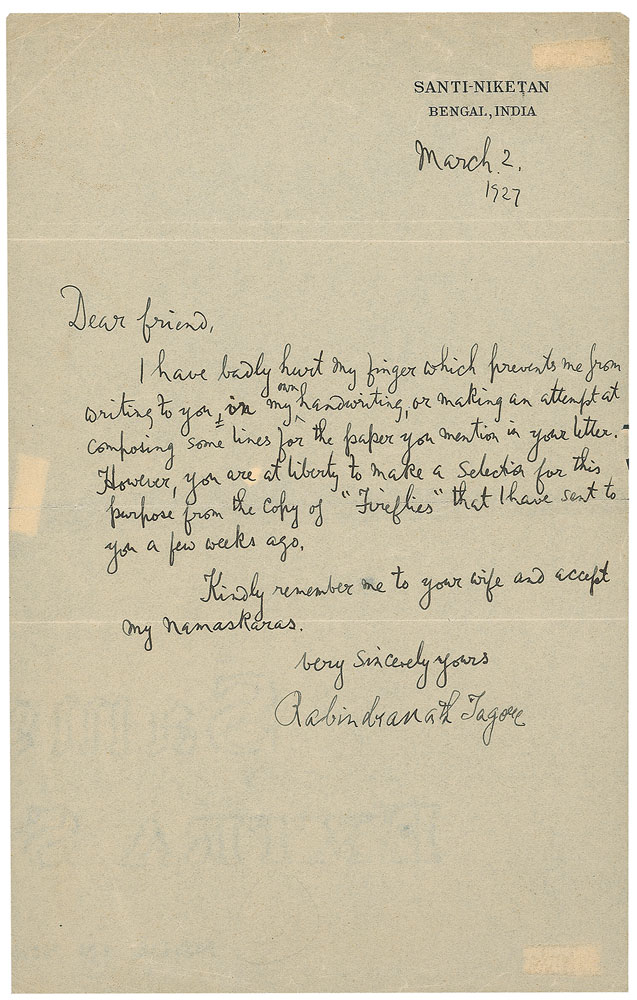 SANTI-NIKETAN
BENGAL, INDIA
March 2.
1927
Dear friend,
I have badly hurt my finger which prevents me from
writing to you, in my own handwriting, or making an attempt at
composing some lines for the paper you mention in your letter.
However, you are at liberty to make a selection for this
purpose from the copy of "Fireflies" that I have sent to
you a few weeks ago.
Kindly remember me to your wife and accept
my namaskaras.
very sincerely yours
Rabindranath Tagore